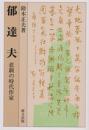 鈴木正夫著
郁達夫
悲劇の時代作家
研文出版